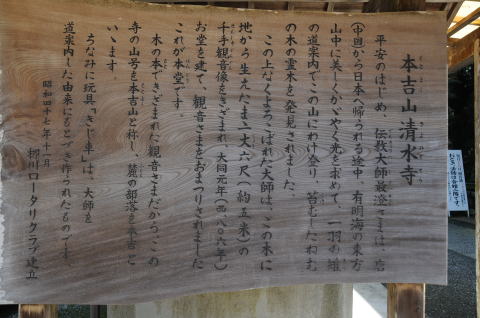 本吉山清水寺
平安のはじめ、伝教大師最澄さまは、唐
(中国)から日本へ帰られる途中、有明海の東方
山中に美しくかゞやく光を求めて、一羽の雉
の道案内でこの山にわけ登り、苔むしたねむ
の木の霊木を発見されました。
この上なくよろこばれた大師は、この木に
地から生えたまゝ一丈六尺(約五米)の
千手観音像をきざまれ、大同元年(西、八〇六年)
お堂を建て、観音さまをおまつりされました
これが本堂です。
木の本できざまれた観音さまだから、この
寺の山号を本吉山と称し、麓の部落を本吉と
いゝます。
ちなみに玩具「きじ車」は、大師を
道案内した由来にもとづき作られたものです。
昭和四十七年十一月
柳川ロータリークラブ建立